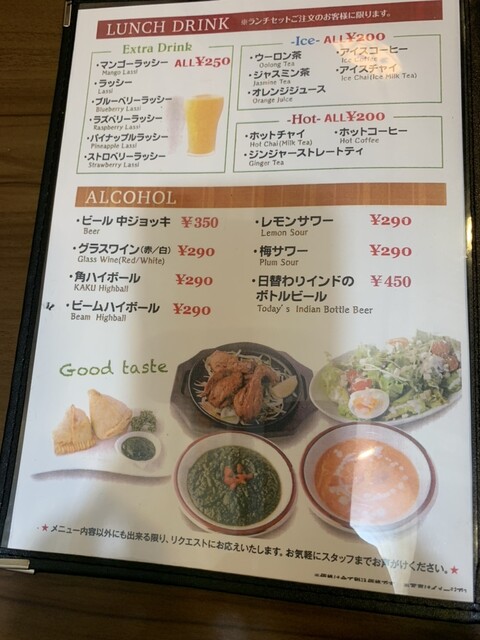 LUNCH DRINK ※ランチセットご注文のお客様に限ります。
Extra Drink
・マンゴーラッシー ALL¥250
Mango Lassi
・ラッシー
Lassi
・ブルーベリーラッシー
Blueberry Lassi
・ラズベリーラッシー
Raspberry Lassi
・パイナップルラッシー
Pineapple Lassi
・ストロベリーラッシー
Strawberry Lassi
-Ice- ALL¥200
・ウーロン茶 ・アイスコーヒー
Oolong Tea Ice Coffee
・ジャスミン茶 ・アイスチャイ
Jasmine Tea Ice Chai(Ice Milk Tea)
・オレンジジュース
Orange Juice
-Hot- ALL¥200
・ホットチャイ ・ホットコーヒー
Hot Chai(Milk Tea) Hot Coffee
・ジンジャーストレートティ
Ginger Tea
ALCOHOL
・ビール 中ジョッキ ¥350 ・レモンサワー ¥290
Beer Lemon Sour
・グラスワイン(赤/白) ¥290 ・梅サワー ¥290
Glass Wine(Red/White) Plum Sour
・角ハイボール ¥290 ・日替わりインドの ¥450
KAKU Highball ボトルビール
・ビームハイボール ¥290 Today's Indian Bottle Beer
Beam Highball
Good taste
★メニュー内容以外にも出来る限り、リクエストにお応えいたします。お気軽にスタッフまでお声がけください。★